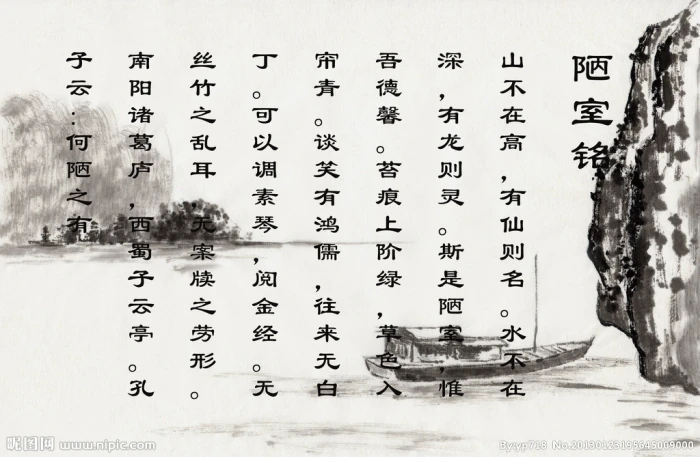 陋室铭
山不在高,有仙则名。水不在
深,有龙则灵。斯是陋室,惟
吾德馨。苔痕上阶绿,草色入
帘青。谈笑有鸿儒,往来无白
丁。可以调素琴,阅金经。无
丝竹之乱耳,无案牍之劳形。
南阳诸葛庐,西蜀子云亭。孔
子云:何陋之有
昵图网 www.nipic.com
By:yp718 No.20130123195645009000